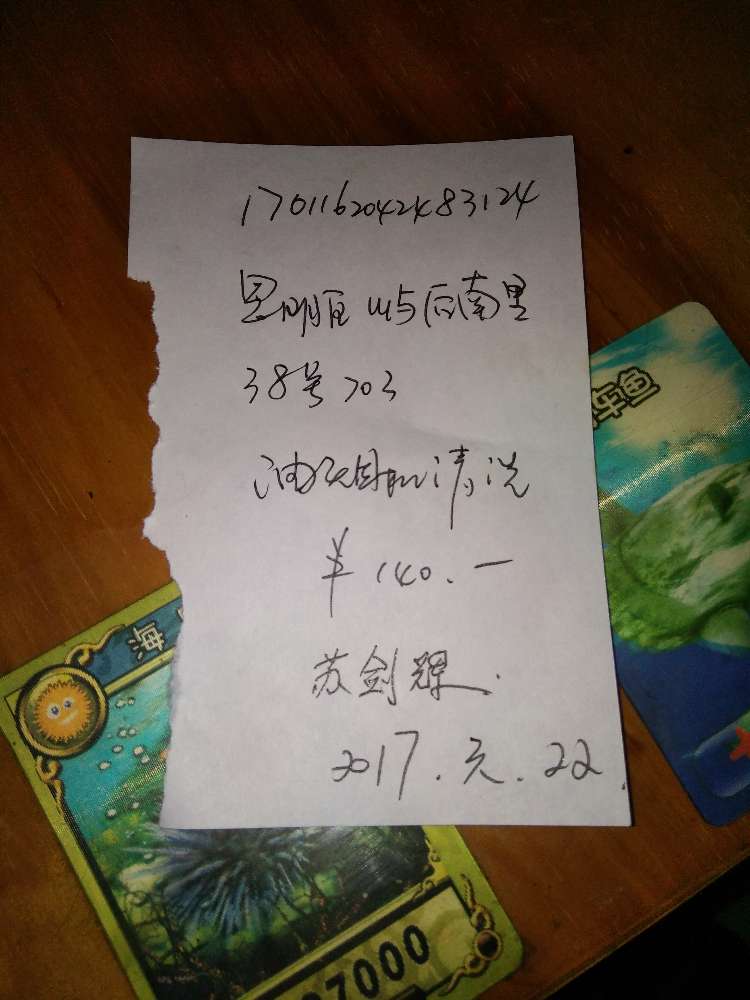 1701162042483124
思明区屿后南里
38号703
油烟机清洗
¥140.一
苏剑辉.
2017.元.22.
鱼
7000